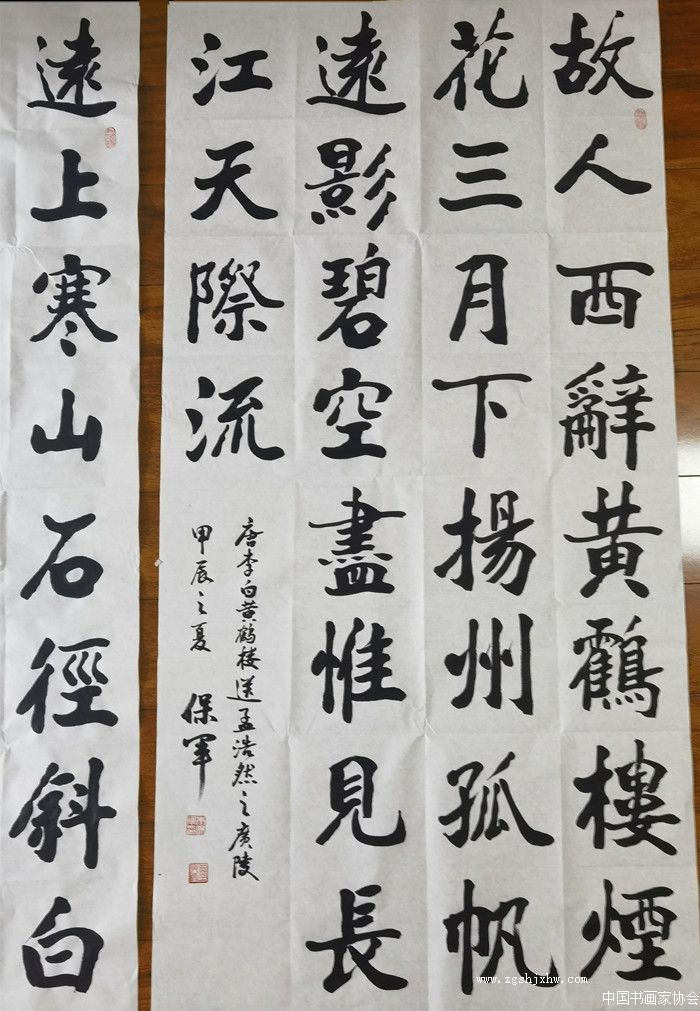 故人西辭黄鶴樓煙
花三月下揚州孤帆
遠影碧空盡惟見長
江天際流
唐李白黄鹤楼送孟浩然之廣陵
甲辰之夏 保军
遠上寒山石徑斜白
www.zgshjxhw.com
中国书画家协会